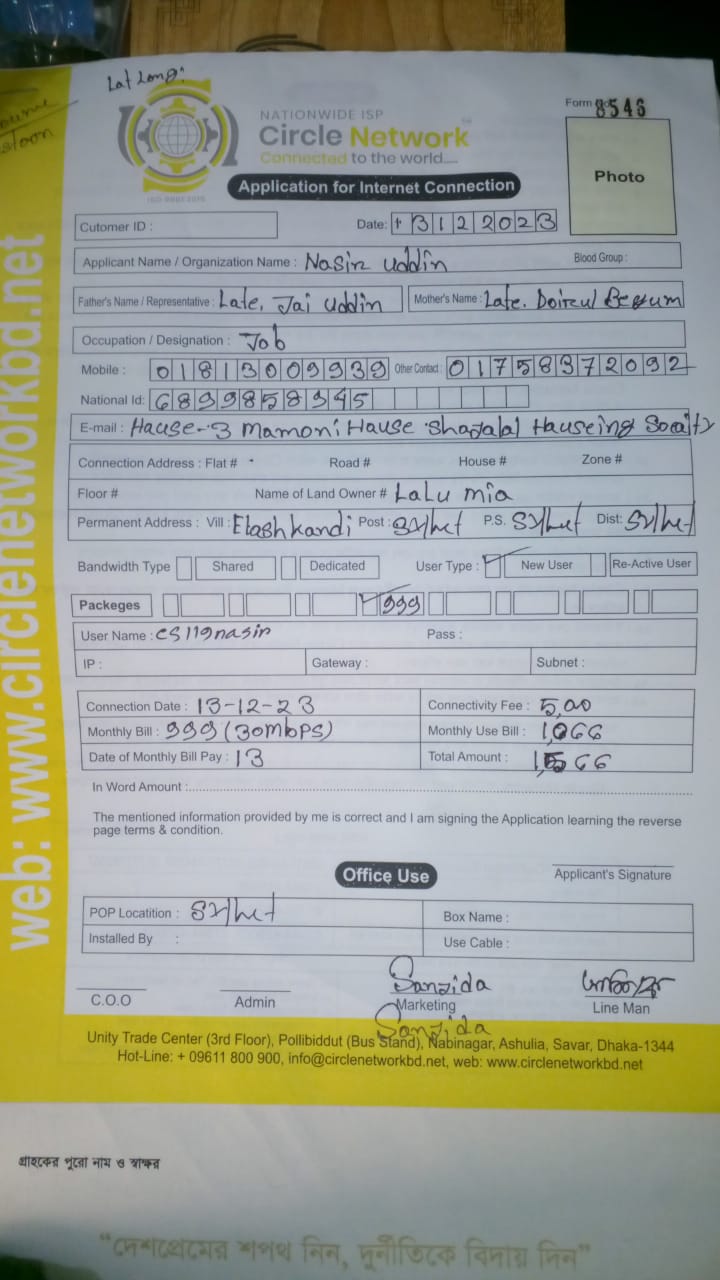 Lat Long:
NATIONWIDE ISP
Circle Network
Connected to the world....
ISO 9001:2015
Form 8546
Photo
Application for Internet Connection
Cutomer ID :
Date: 13122023
Applicant Name / Organization Name : Nasir uddin
Blood Group :
Father's Name / Representative : Late. Jai uddin
Mother's Name : Late. Doirul Begum
Occupation / Designation : Job
Mobile : 01813009939 Other Contact : 01758372092
National Id: 6899858945
E-mail : Hause-3 Mamoni Hause Shagalal Hauseing Socaity
Connection Address : Flat # Road # House # Zone #
Floor # Name of Land Owner # Lalu mia
Permanent Address : Vill : Elashkandi Post : Sylhet P.S. Sylhet Dist: Sylhet
Bandwidth Type Shared Dedicated User Type : New User Re-Active User
Packeges 999
User Name : cs119nasir Pass :
IP : Gateway : Subnet :
Connection Date : 13-12-23 Connectivity Fee : 5,00
Monthly Bill : 999 (30mbps) Monthly Use Bill : 1,066
Date of Monthly Bill Pay : 13 Total Amount : 1,566
In Word Amount :
The mentioned information provided by me is correct and I am signing the Application learning the reverse
page terms & condition.
Office Use
Applicant's Signature
POP Locatition : Sylhet Box Name :
Installed By : Use Cable :
Sanzida
C.O.O Admin Marketing Line Man
Sanzida
Unity Trade Center (3rd Floor), Pollibiddut (Bus Stand), Nabinagar, Ashulia, Savar, Dhaka-1344
Hot-Line: + 09611 800 900, info@circlenetworkbd.net, web: www.circlenetworkbd.net
web: www.circlenetworkbd.net
গ্রাহকের পুরো নাম ও স্বাক্ষর
“দেশপ্রেমের শপথ নিন, দুর্নীতিকে বিদায় দিন”